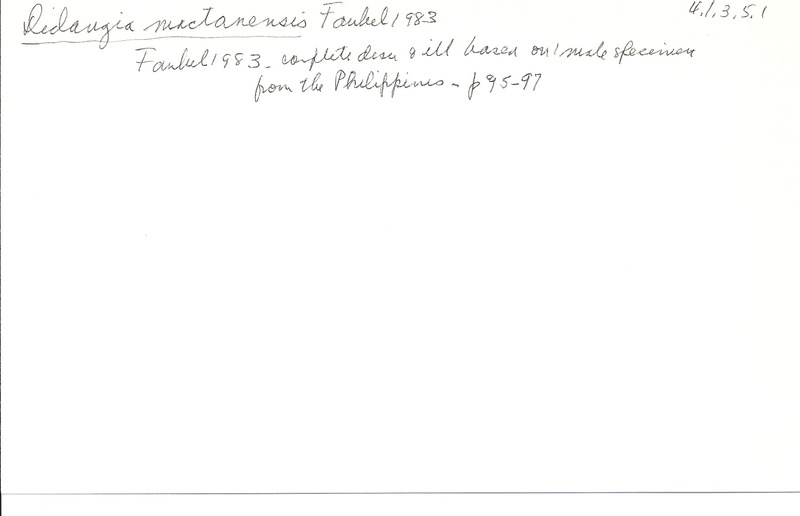 Didangia mactanensis Faubel 1983 4.1.3.5.1
Faubel 1983 - complete descr & ill based on 1 male specimen
from the Philippines - p 95-97